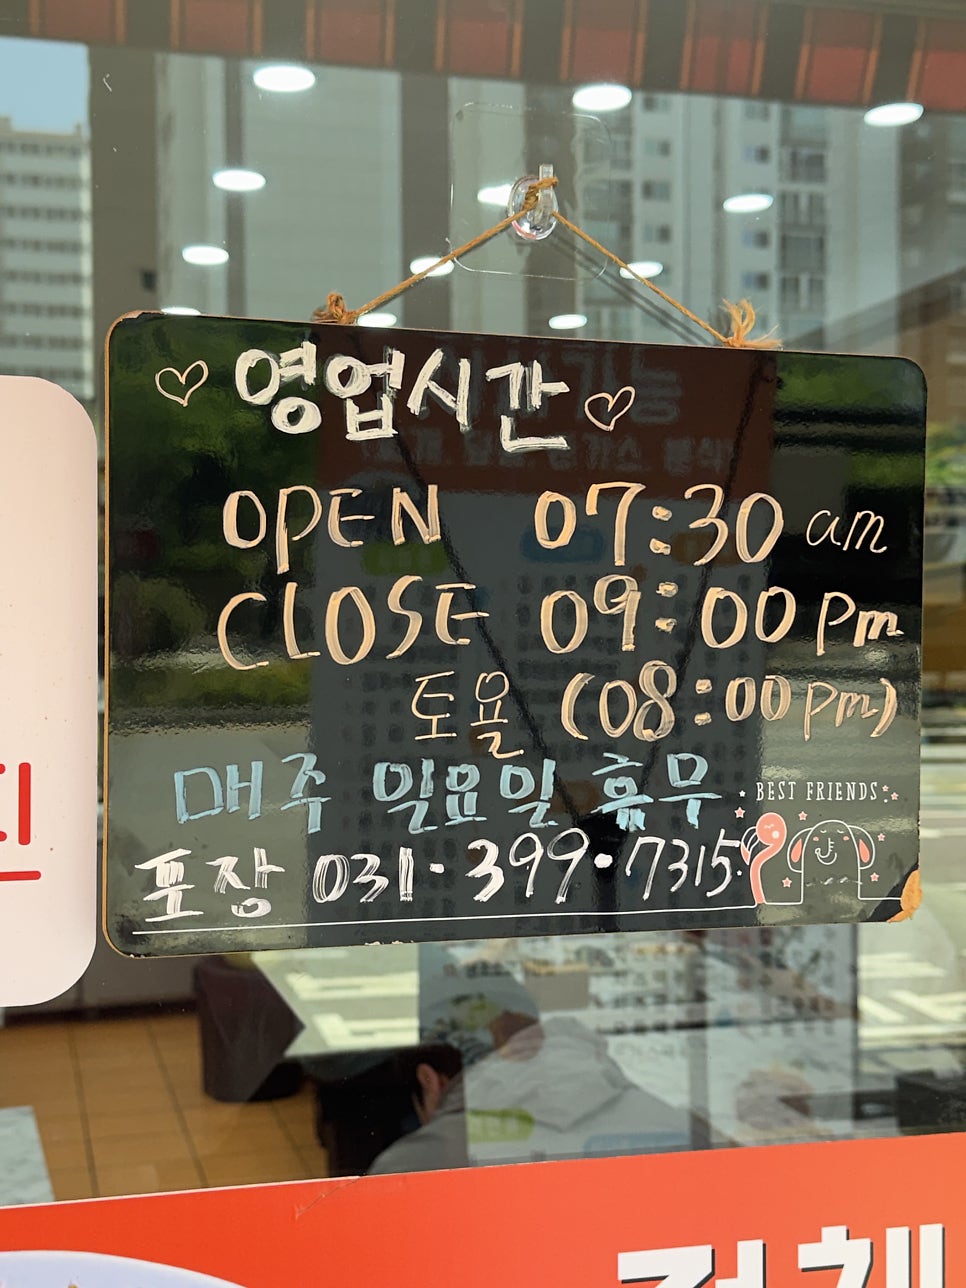 ♡ 영업시간 ♡
OPEN 07:30 am
CLOSE 09:00 pm
토욜 (08:00pm)
매주 일요일 휴무
BEST FRIENDS
포장 031·399·7315